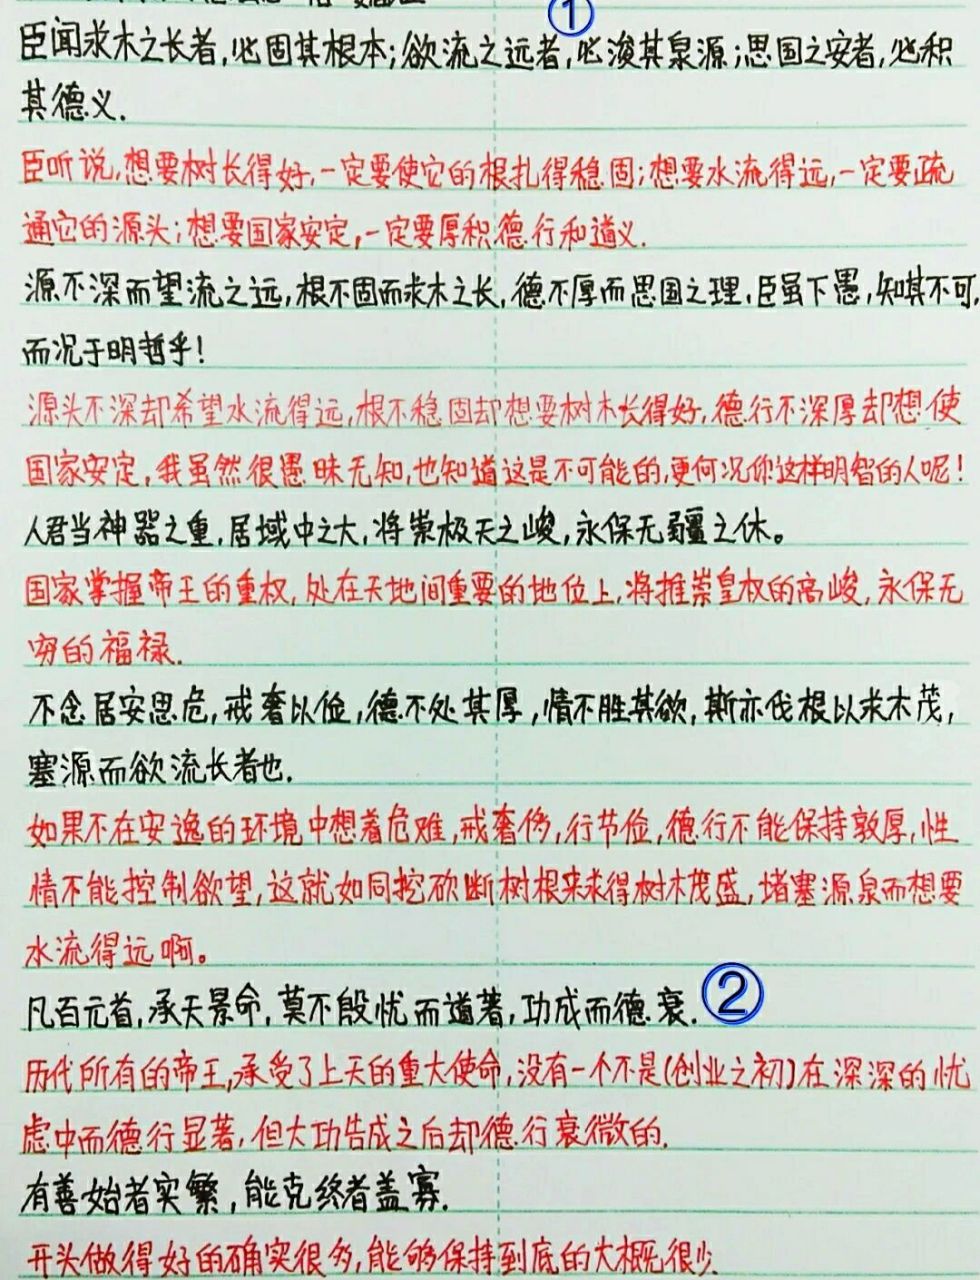 ①
臣闻求木之长者,必固其根本;欲流之远者,必浚其泉源;思国之安者,必积
其德义.
臣听说,想要树长得好,一定要使它的根扎得稳固;想要水流得远,一定要疏
通它的源头;想要国家安定,一定要厚积德行和道义.
源不深而望流之远,根不固而求木之长,德不厚而思国之理,臣虽下愚,知其不可,
而况于明哲乎!
源头不深却希望水流得远,根不稳固却想要树木长得好,德行不深厚却想使
国家安定,我虽然很愚昧无知,也知道这是不可能的,更何况你这样明智的人呢!
人君当神器之重,居域中之大,将崇极天之峻,永保无疆之休。
国家掌握帝王的重权,处在天地间重要的地位上,将推崇皇权的高峻,永保无
穷的福禄.
不念居安思危,戒奢以俭,德不处其厚,情不胜其欲,斯亦伐根以求木茂,
塞源而欲流长者也.
如果不在安逸的环境中想着危难,戒奢侈,行节俭,德行不能保持敦厚,性
情不能控制欲望,这就如同挖砍断树根来求得树木茂盛,堵塞源泉而想要
水流得远啊。
凡百元首,承天景命,莫不殷忧而道著,功成而德衰. ②
历代所有的帝王,承受了上天的重大使命,没有一个不是(创业之初)在深深的忧
虑中而德行显著,但大功告成之后却德行衰微的.
有善始者实繁,能克终者盖寡.
开头做得好的确实很多,能够保持到底的大概很少